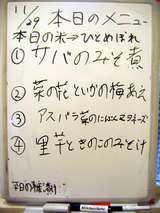 11/29 本日のメニュー
本日の米→ひとめぼれ
① サバのみそ煮
② 菜の花といかの梅あえ
③ アスパラ菜のにんじんマヨネーズ
④ 里芋ときのこのみそ汁